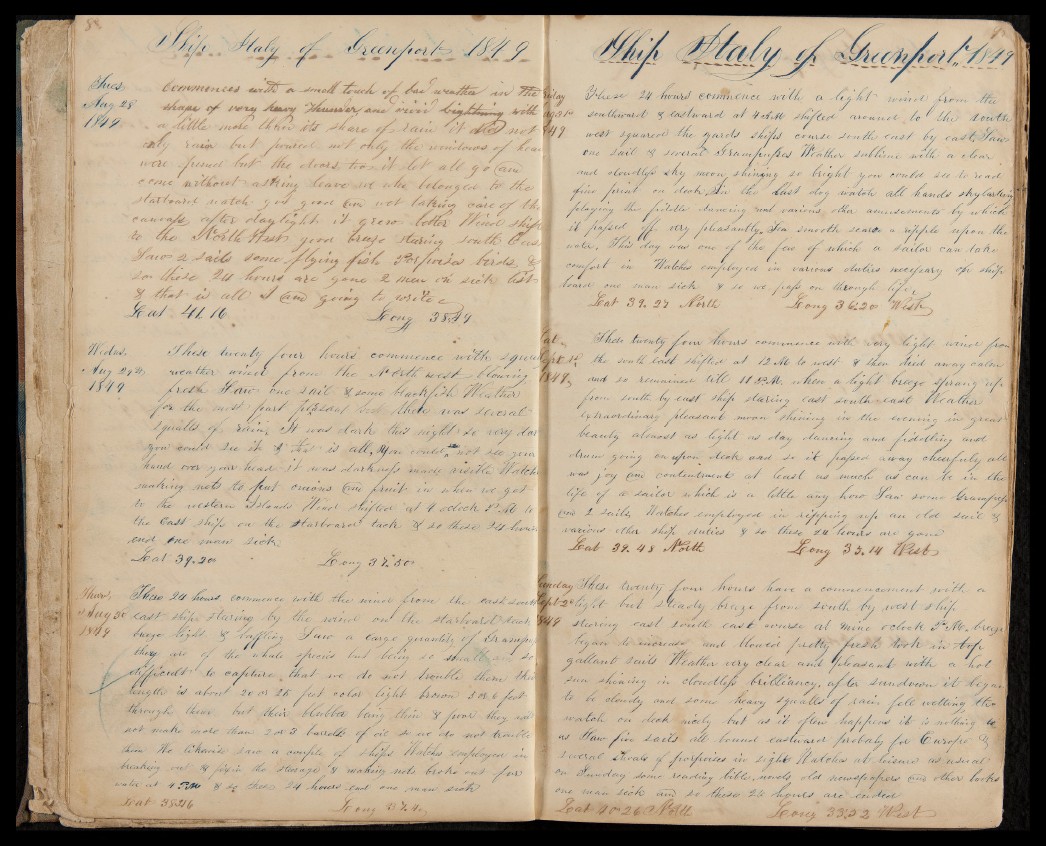 88
Ship Italy of Greenport 1849
Tues. Commences with a small touch of bad weather in the
Aug 28 shape of very heavy Thunder, and vivid Lightning with
1849 a little more than its share of rain it did not
only rain but poured not only the windows of heaven
were opened but the doors too it let all go
come without asking leave
starboard watch got good not taking care of the
canvass after daylight it grew better Wind shifted
to the North West good breeze staring south East
Saw 2 sails some flying fish Porpoises birds &c
so these 24 hours are gone 2 men on sick list
& that is all I am going to write
Lat 41.16 Long 38.49
Wednes. These twenty four hours commence with squally
Aug 29th weather wind from the North west blowing
1849 fresh Saw one sail & some blackfish Weather
for the most part pleasant but there was several
squalls of rain, It was dark this night so very dark
you could see it & that is all, Man could not see your
hand over your head it was darkness made visible Watches
making nets to put onions and fruit in when we get
to the western Islands Wind shifted at 9 oclock P.M to
the East ship on the Starboard tack & so these 24 hours
end one man sick
Lat 39.20 Long 37.50
Thurs. These 24 hours commence with the wind from the east south
Aug 30 east ship staring by the wind on the starboard tack,
1849 breeze light & baffling Saw a large quantity of Grampus
they are of the whale species but being so small and so
difficult to capture, that we do not trouble them their
lengths is about 20 or 25 feet color light brown 5 or 6 feet
through them, but their blubber being thin & poor they will
not make more than 2 or 3 barrells of oil so we do not trouble
them We likewise saw a couple of ships Watches employed in
breaking out & fixing the stowage & making nets broke out for
water at 4 P.M & so these 24 hours end one man sick
Lat 38.46 Long 37.4
Ship Italy of Greenport, 1849
Friday These 24 hours commence with a light wind from the
Aug 31st southward & eastward at 4 A.M shifted around to the south
1849 west squared the yards ships course south east by east, Saw
one sail & several Grampuses Weather sublime with a clear
and cloudless sky moon shinging so bright you could see to read
fine print on deck, In the last dog watch all hands skylarking
playing the fiddle dancing and various other amusements by which
it passed off very pleasantly, Sea smooth scarce a ripple upon the
water, This day was one of the few of which a sailor can take
comfort in Watches employed in various duties necessary on ship
board one man sick & so we pass on through life,
Lat 39.27 North Long 36.20 West
Sat. These twenty four hours commence with very light wind from
Sept 1st the south east shifted at 12 M to west & then died away calm
1849, and so remained till 11 P.M, when a light breeze sprang up
from south by east ship staring east south east Weather
extraordinary pleasant moon shining in the evening in great
beauty almost as light as day dancing and fiddling and
drum going on upon deck and so it passed away cheerfuly all
was joy and contentment at least as much as can be in the
life of a sailor which is a little any how Saw some Grampuses
and 2 sails, Watches employed in ripping up an old sail &
various other ship duties & so these 24 hours are gone
Lat 39.48 North Long 35.14 West
Sunday These twenty four hours have a commencement with a
Sept 2d light but steady breeze from south by west ship
1849 staring east south east course at nine oclock P.M. breeze
began to increase and blowed pretty fresh took in top
gallant sails Weather very clear and pleasant with a hot
sun shining in cloudless brilliancy, after sundown it began
to be cloudy and some heavy squalls of rain fell wetting the
watch on deck nicely but as it often happens it is nothing to
us Saw five sails all bound eastward probaly for Europe &
several shoals of porpoises in sight Watches at leisure as usual
on Sunday some reading bible, novels, old newspapers and other books
one man sick and so these 24 hours are ended
Lat 40.26 North Long 33.52 West